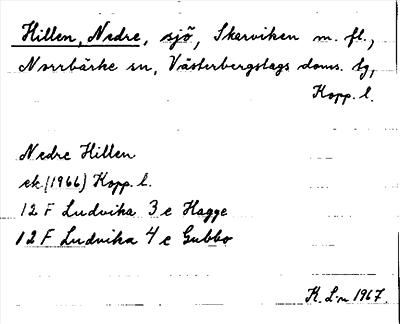 Hillen, Nedre, sjö, Skarviken m. fl.,
Norrbärke sn, Västerbergslags doms. tg,
Kopp. l.
Nedre Hillen
ek. (1966) Kopp. l.
12 F Ludvika 3 e Hagge
12 F Ludvika 4 e Gubbo
K. L:n 1967.